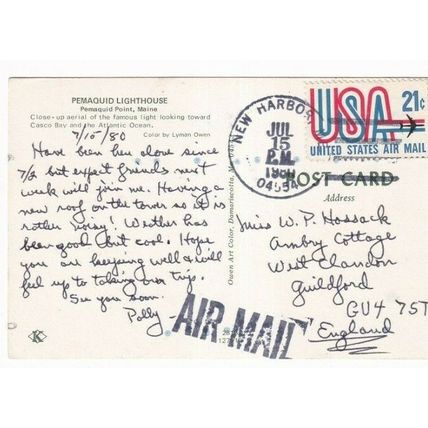 PEMAQUID LIGHTHOUSE
Pemaquid Point, Maine
Close-up aerial of the famous light looking toward
Casco Bay and the Atlantic Ocean.
Color by Lyman Owen
7/15/80
Have been here alone since
7/2 but expect friends next
week will join me. Having a
new roof on the tower so it is
rather noisy! Weather has
been good but cool. Hope
you are keeping well & will
feel up to taking our trip.
See you soon.
Polly
K
Owen Art Color, Damariscotta, Me.
NEW HARBOR
JUL
15
P.M.
1980
USA 21c
UNITED STATES AIR MAIL
POST CARD
Address
Miss W. P. Hossack
Amby Cottage
West Clandon
Guildford
GU4 7ST
England
AIR MAIL